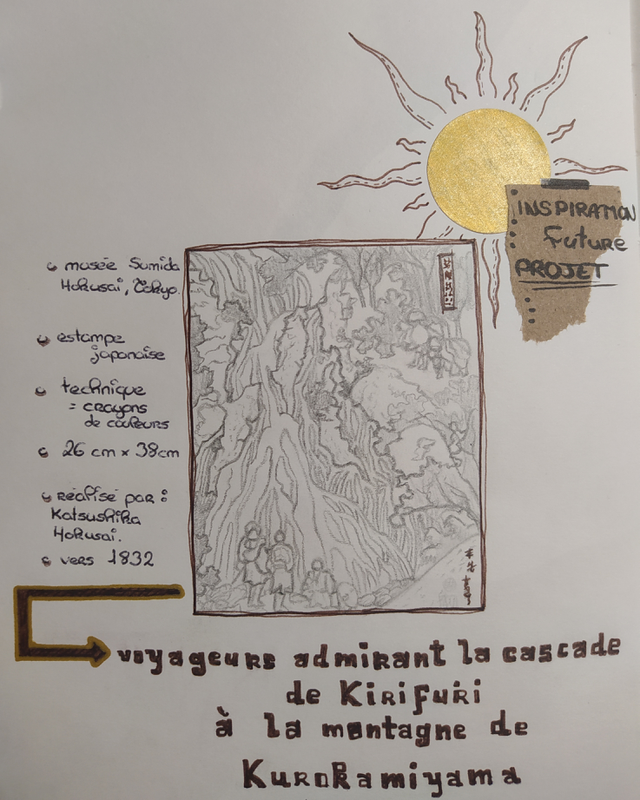 INSPIRATION
Future
PROJET
musée Sumida
Hokusai, Tokyo.
estampe
japonaise
technique
= crayons
de couleurs
26 cm x 38cm
réalisé par :
Katsushika
Hokusai.
vers 1832
voyageurs admirant la cascade
de Kirifuri
à la montagne de
Kurokamiyama